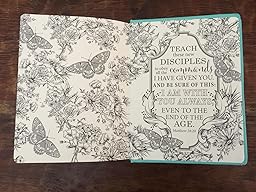 TEACH
these new
DISCIPLES
to obey
all the commands
I HAVE GIVEN YOU.
AND BE SURE OF THIS:
I AM WITH
YOU ALWAYS,
EVEN TO THE
END OF THE
AGE.
Matthew 28:20